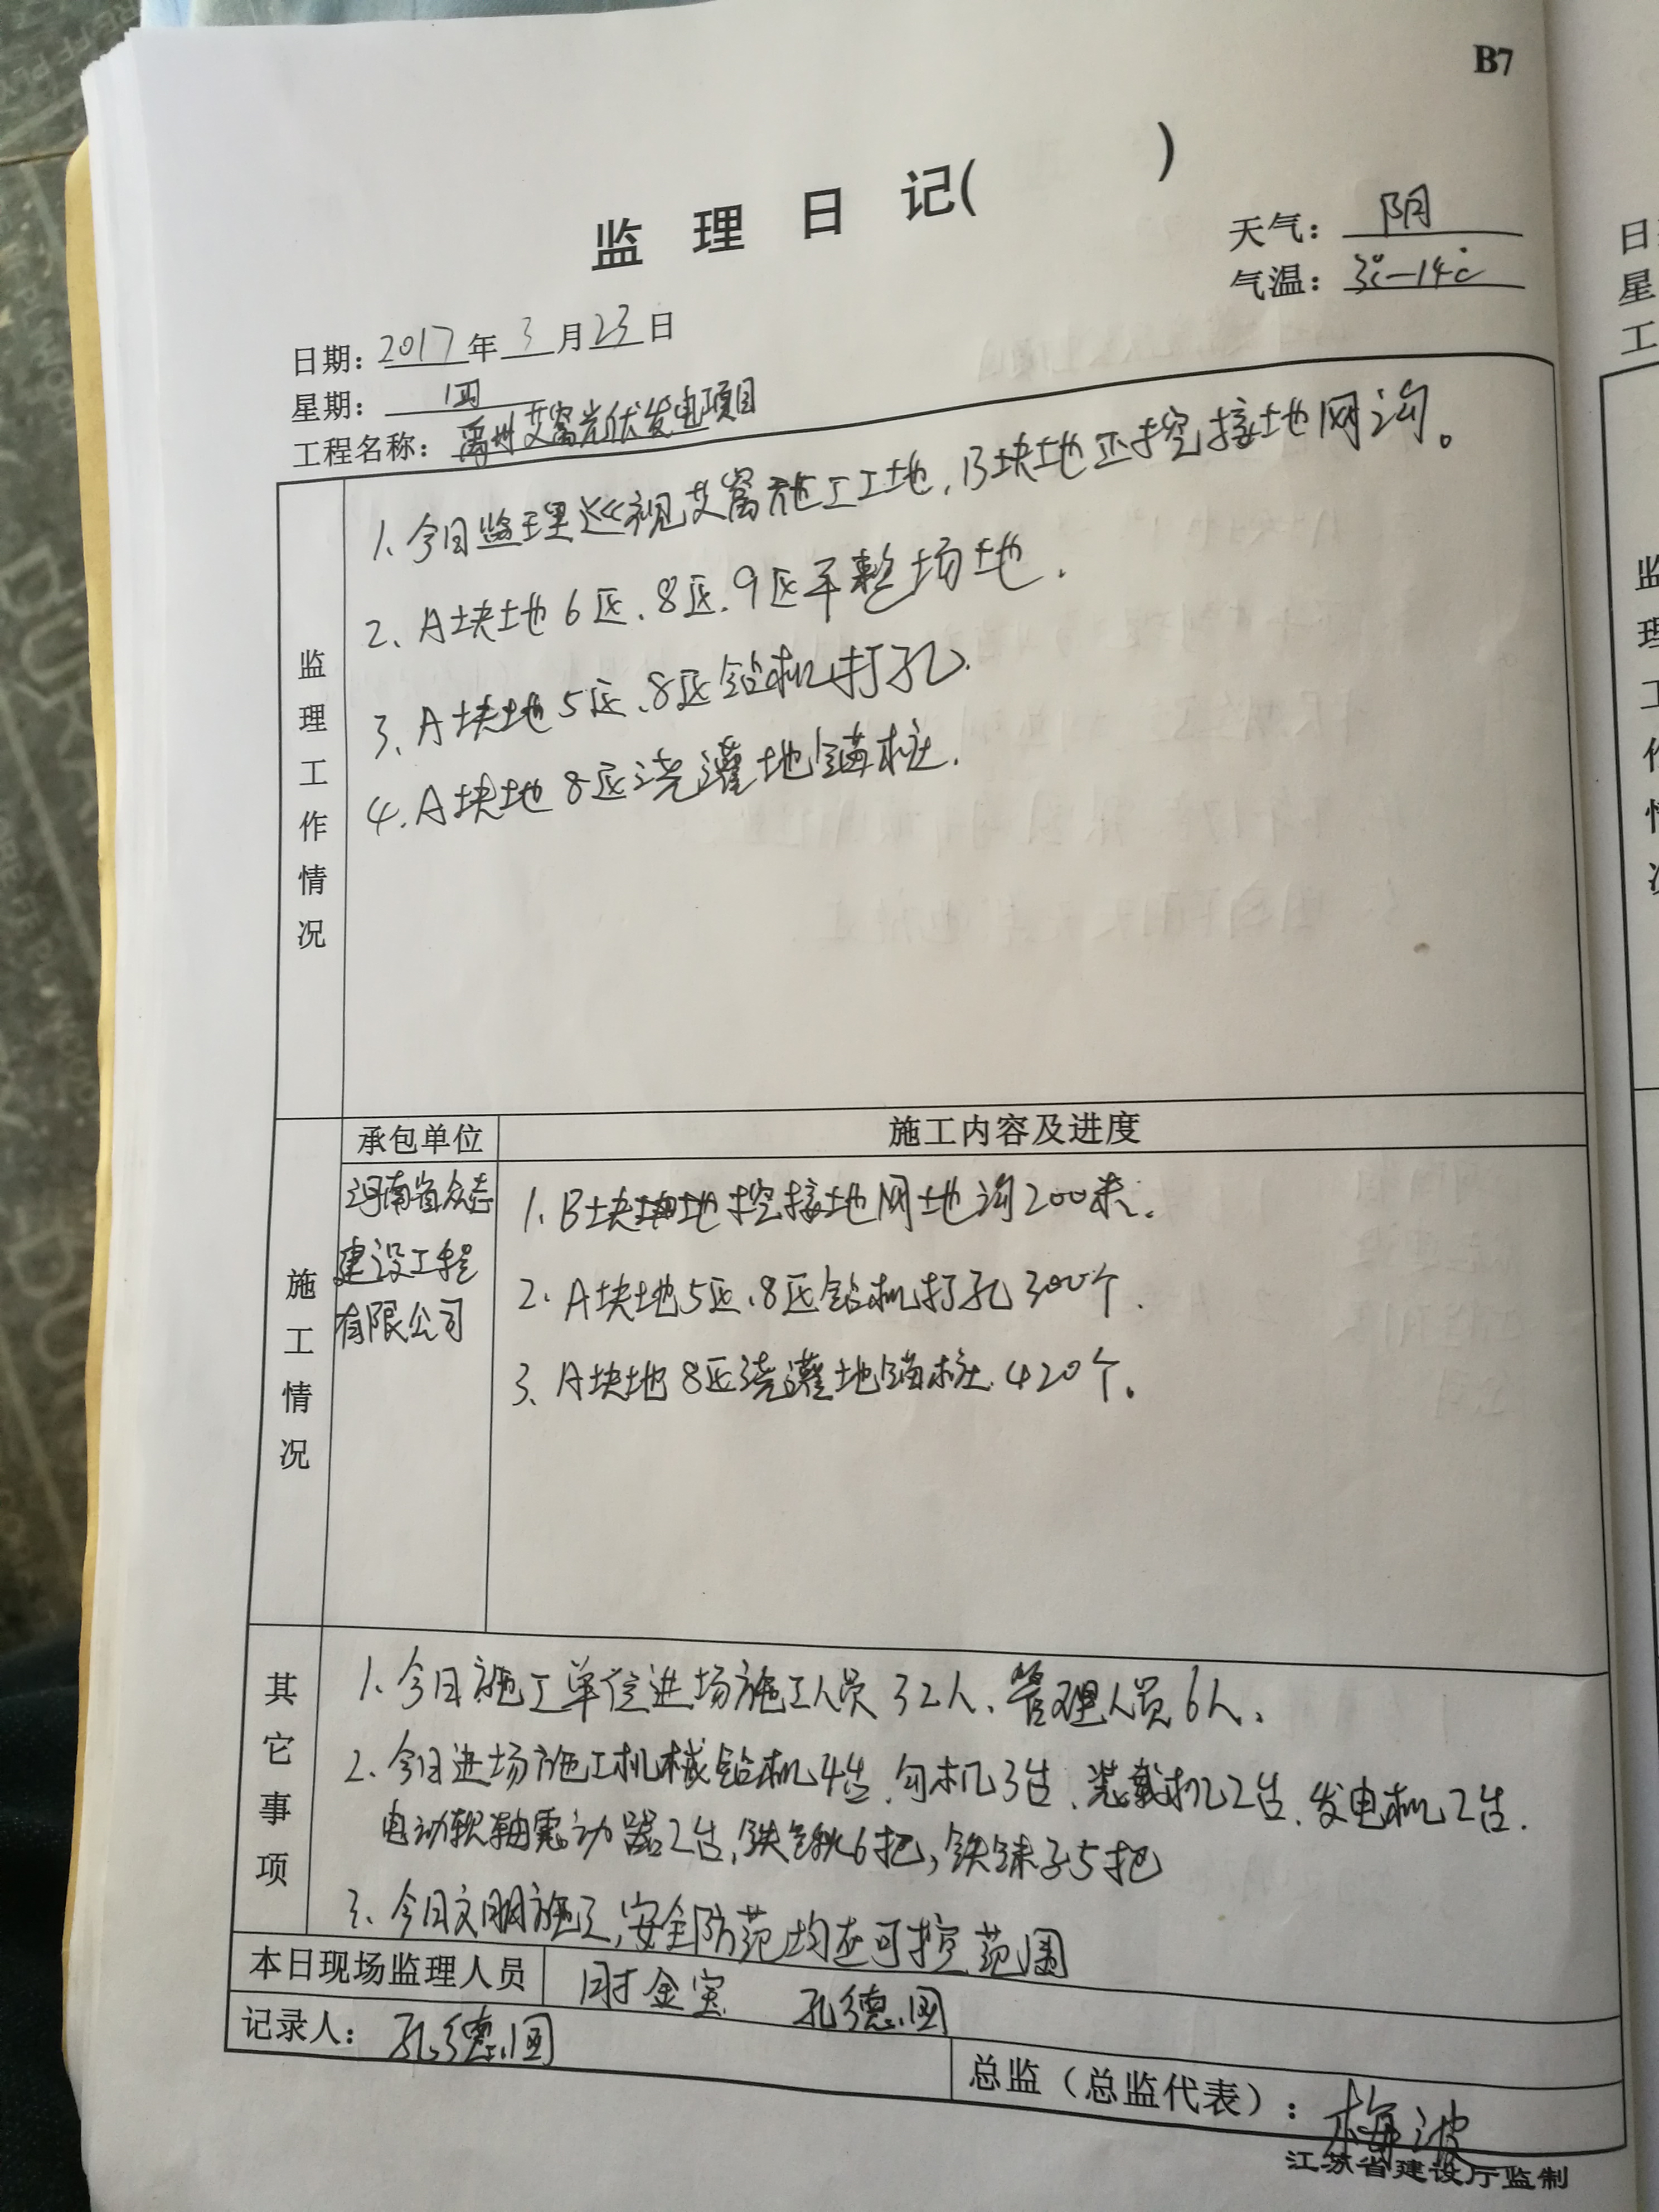 B7
监 理 日 记( )
天气: 阴
气温: 3℃-14℃
日期: 2017年3月23日
星期: 四
工程名称: 禹州艾窝光伏发电项目
监理工作情况
1、今日监理巡视艾窝施工工地,B块地正挖接地网沟。
2、A块地6区、8区、9区平整场地.
3、A块地5区、8区钻机打孔.
4、A块地8区浇灌地锚桩.
施工情况
承包单位
施工内容及进度
河南省众志
建设工程
有限公司
1、B块地挖接地网地沟200米.
2、A块地5区、8区钻机打孔300个.
3、A块地8区浇灌地锚桩420个。
其它事项
1、今日施工单位进场施工人员32人、管理人员6人、
2、今日进场施工机械钻机4台、勾机3台、装载机2台、发电机2台.
电动软轴震动器2台,铁锹6把,铁抹子5把
3、今日文明施工,安全防范均在可控范围
本日现场监理人员 金宝 孔德国
记录人: 孔德国
总监(总监代表): 梅波
江苏省建设厅监制
日
星
工
监
理
工
作
情